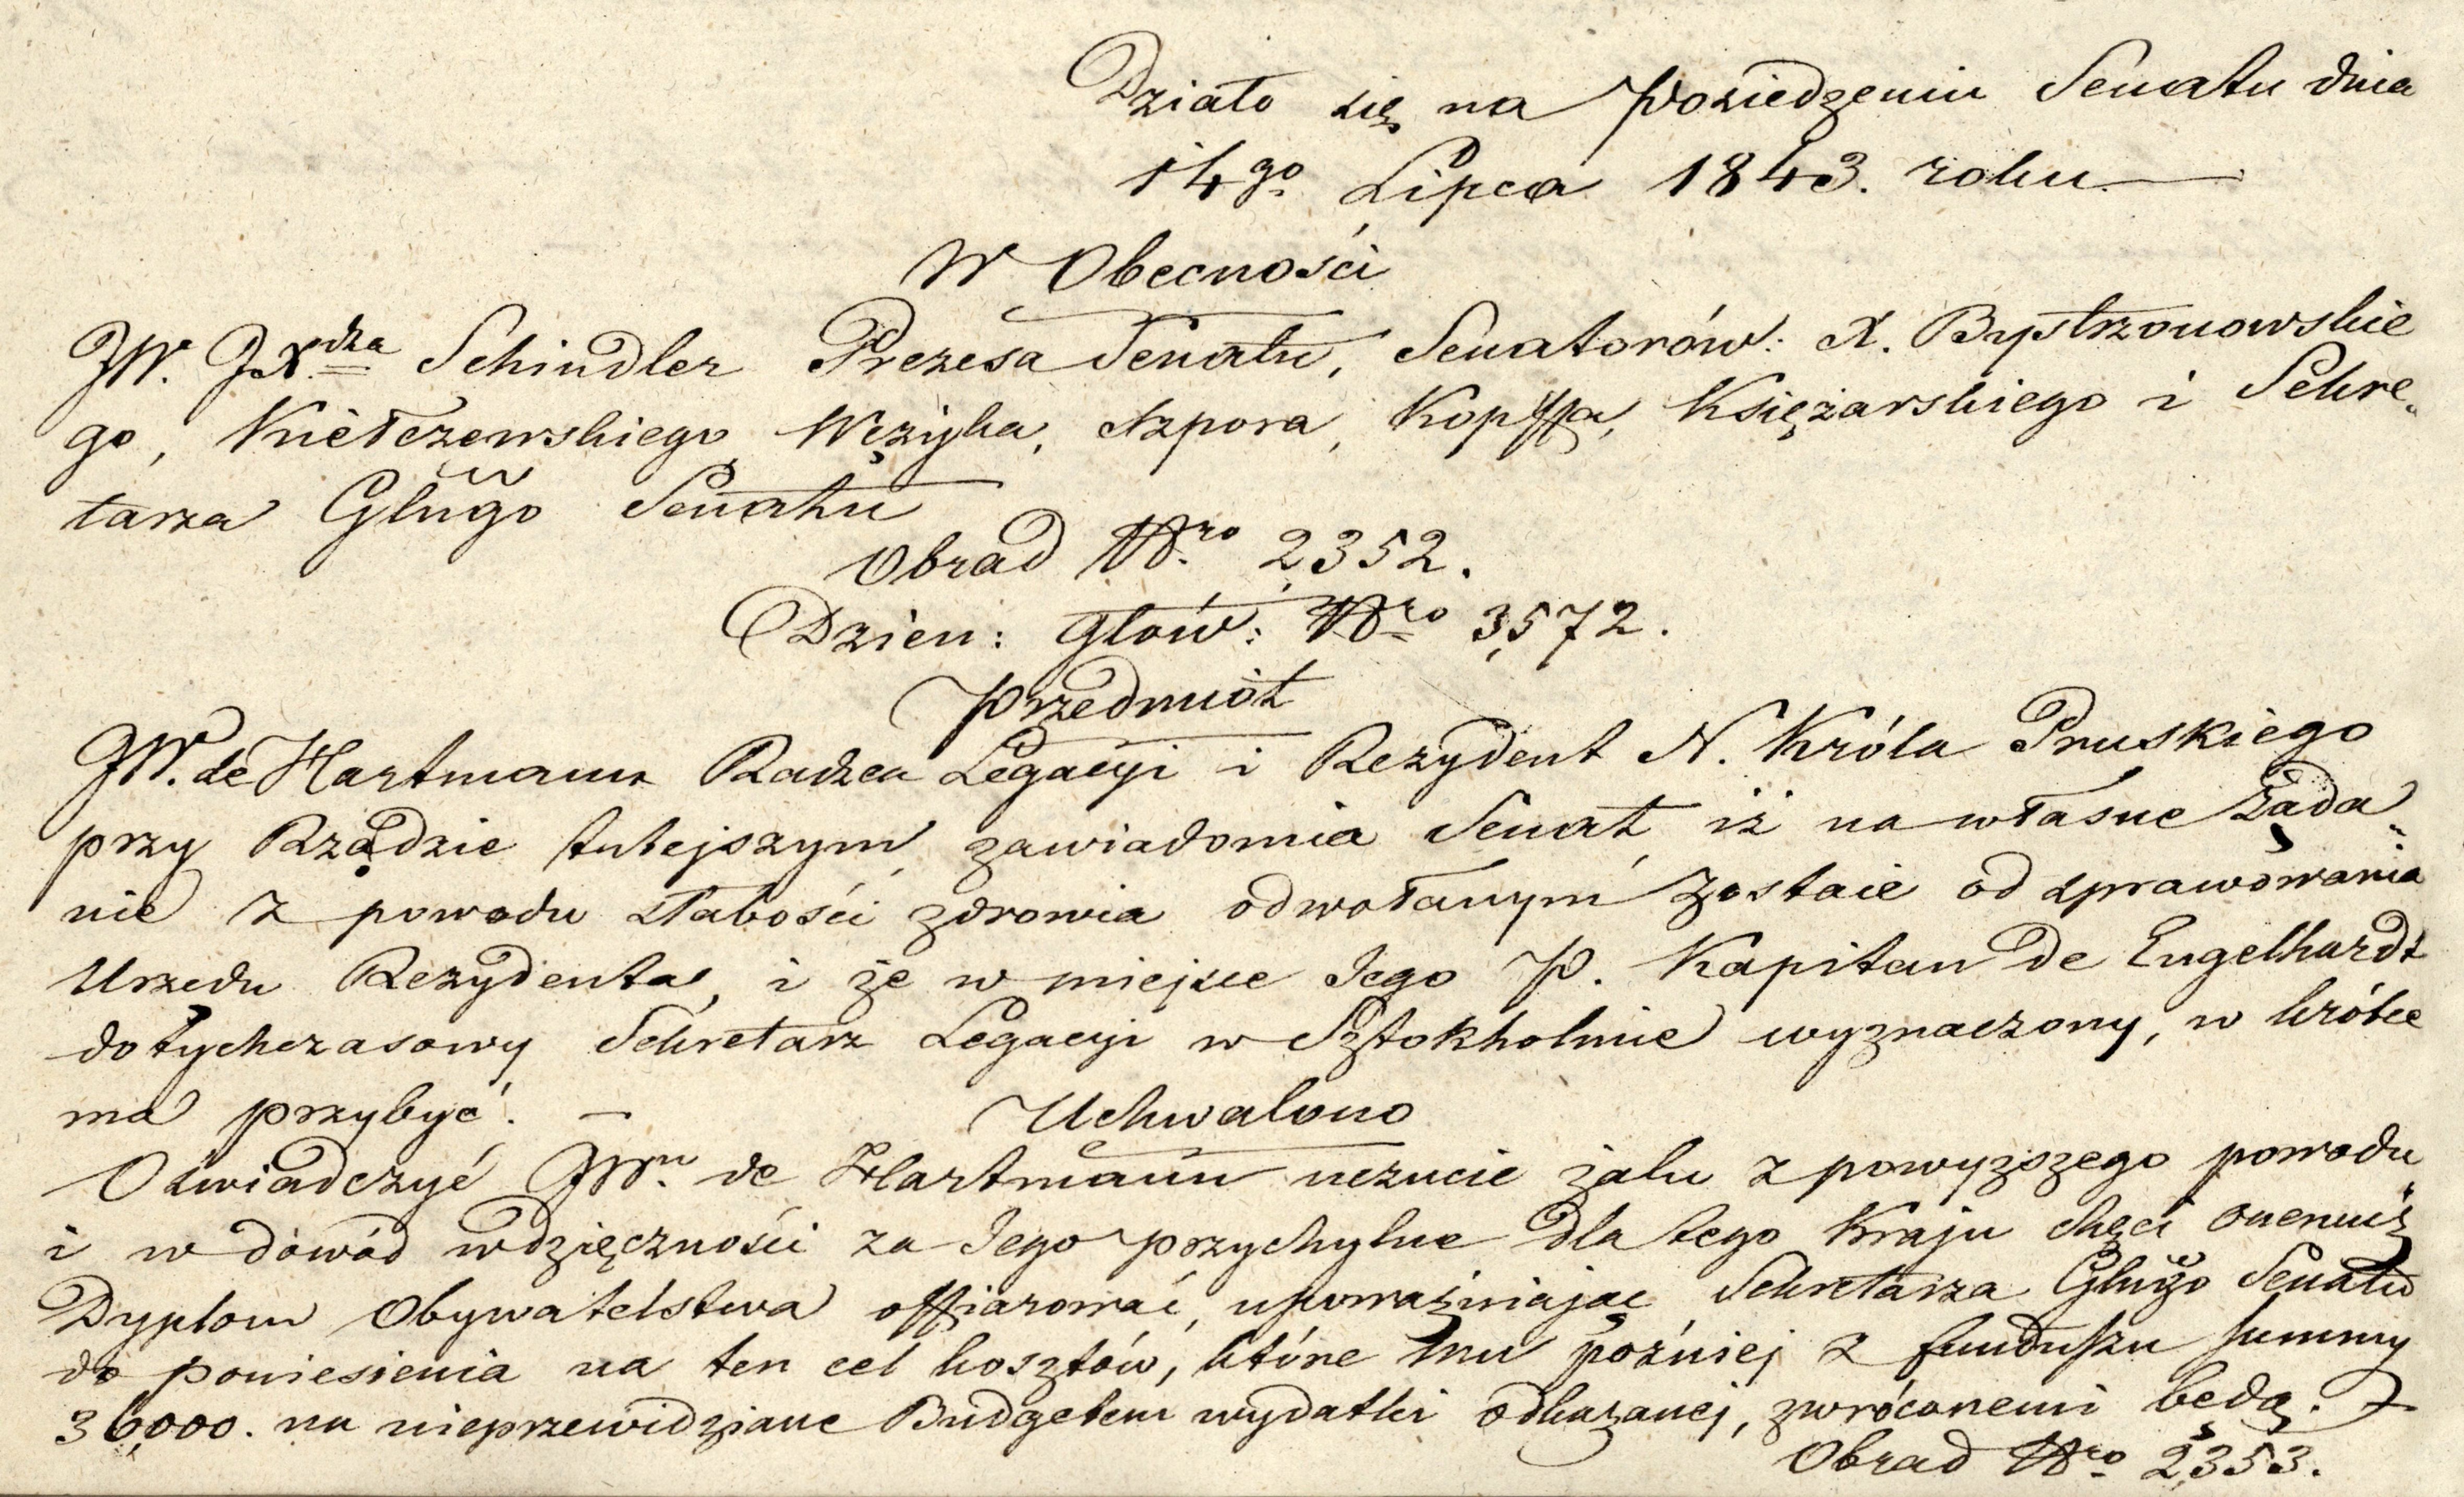 Działo się na Posiedzeniu Senatu dnia
14go Lipca 1843. roku.—
W Obecności
JW. JXdza Schindler Prezesa Senatu, Senatorów: X. Bystrzonowskie
go, Kiełczewskiego, Wężyka, Szpora, Kopffa, Księżarskiego i Sekre„
tarza Głngo Senatu
Obrad Nro 2,352.
Dzien: Głów: Nro 3,572.
Przedmiot
JW. de Hartmann Radzca Legacyi i Rezydent N. Króla Pruskiego
przy Rządzie tutejszym, zawiadomia Senat, iż na własne żąda„
nie z powodu słabości zdrowia odwołanym zostaie od sprawowania
Urzędu Rezydenta, i że w miejsce Jego P. Kapitan de Engelhardt
dotychczasowy Sekretarz Legacyi w Sztokholmie wyznaczony, w krótce
ma przybyć. —
Uchwalono
Oświadczyć JWu de Hartmann uczucie żalu z powyższego powodu,
i w dowód wdzięczności za Jego przychylne dla tego Kraju chęci onemuż
Dyplom Obywatelstwa offiarować, upoważniając Sekretarza Głngo Senatu
do poniesienia na ten cel kosztów, które mu poźniej z funduszu summy
36,000. na nieprzewidziane Budgetem wydatki odkazanej, zwróconemi będą. —
Obrad Nro 2,353.